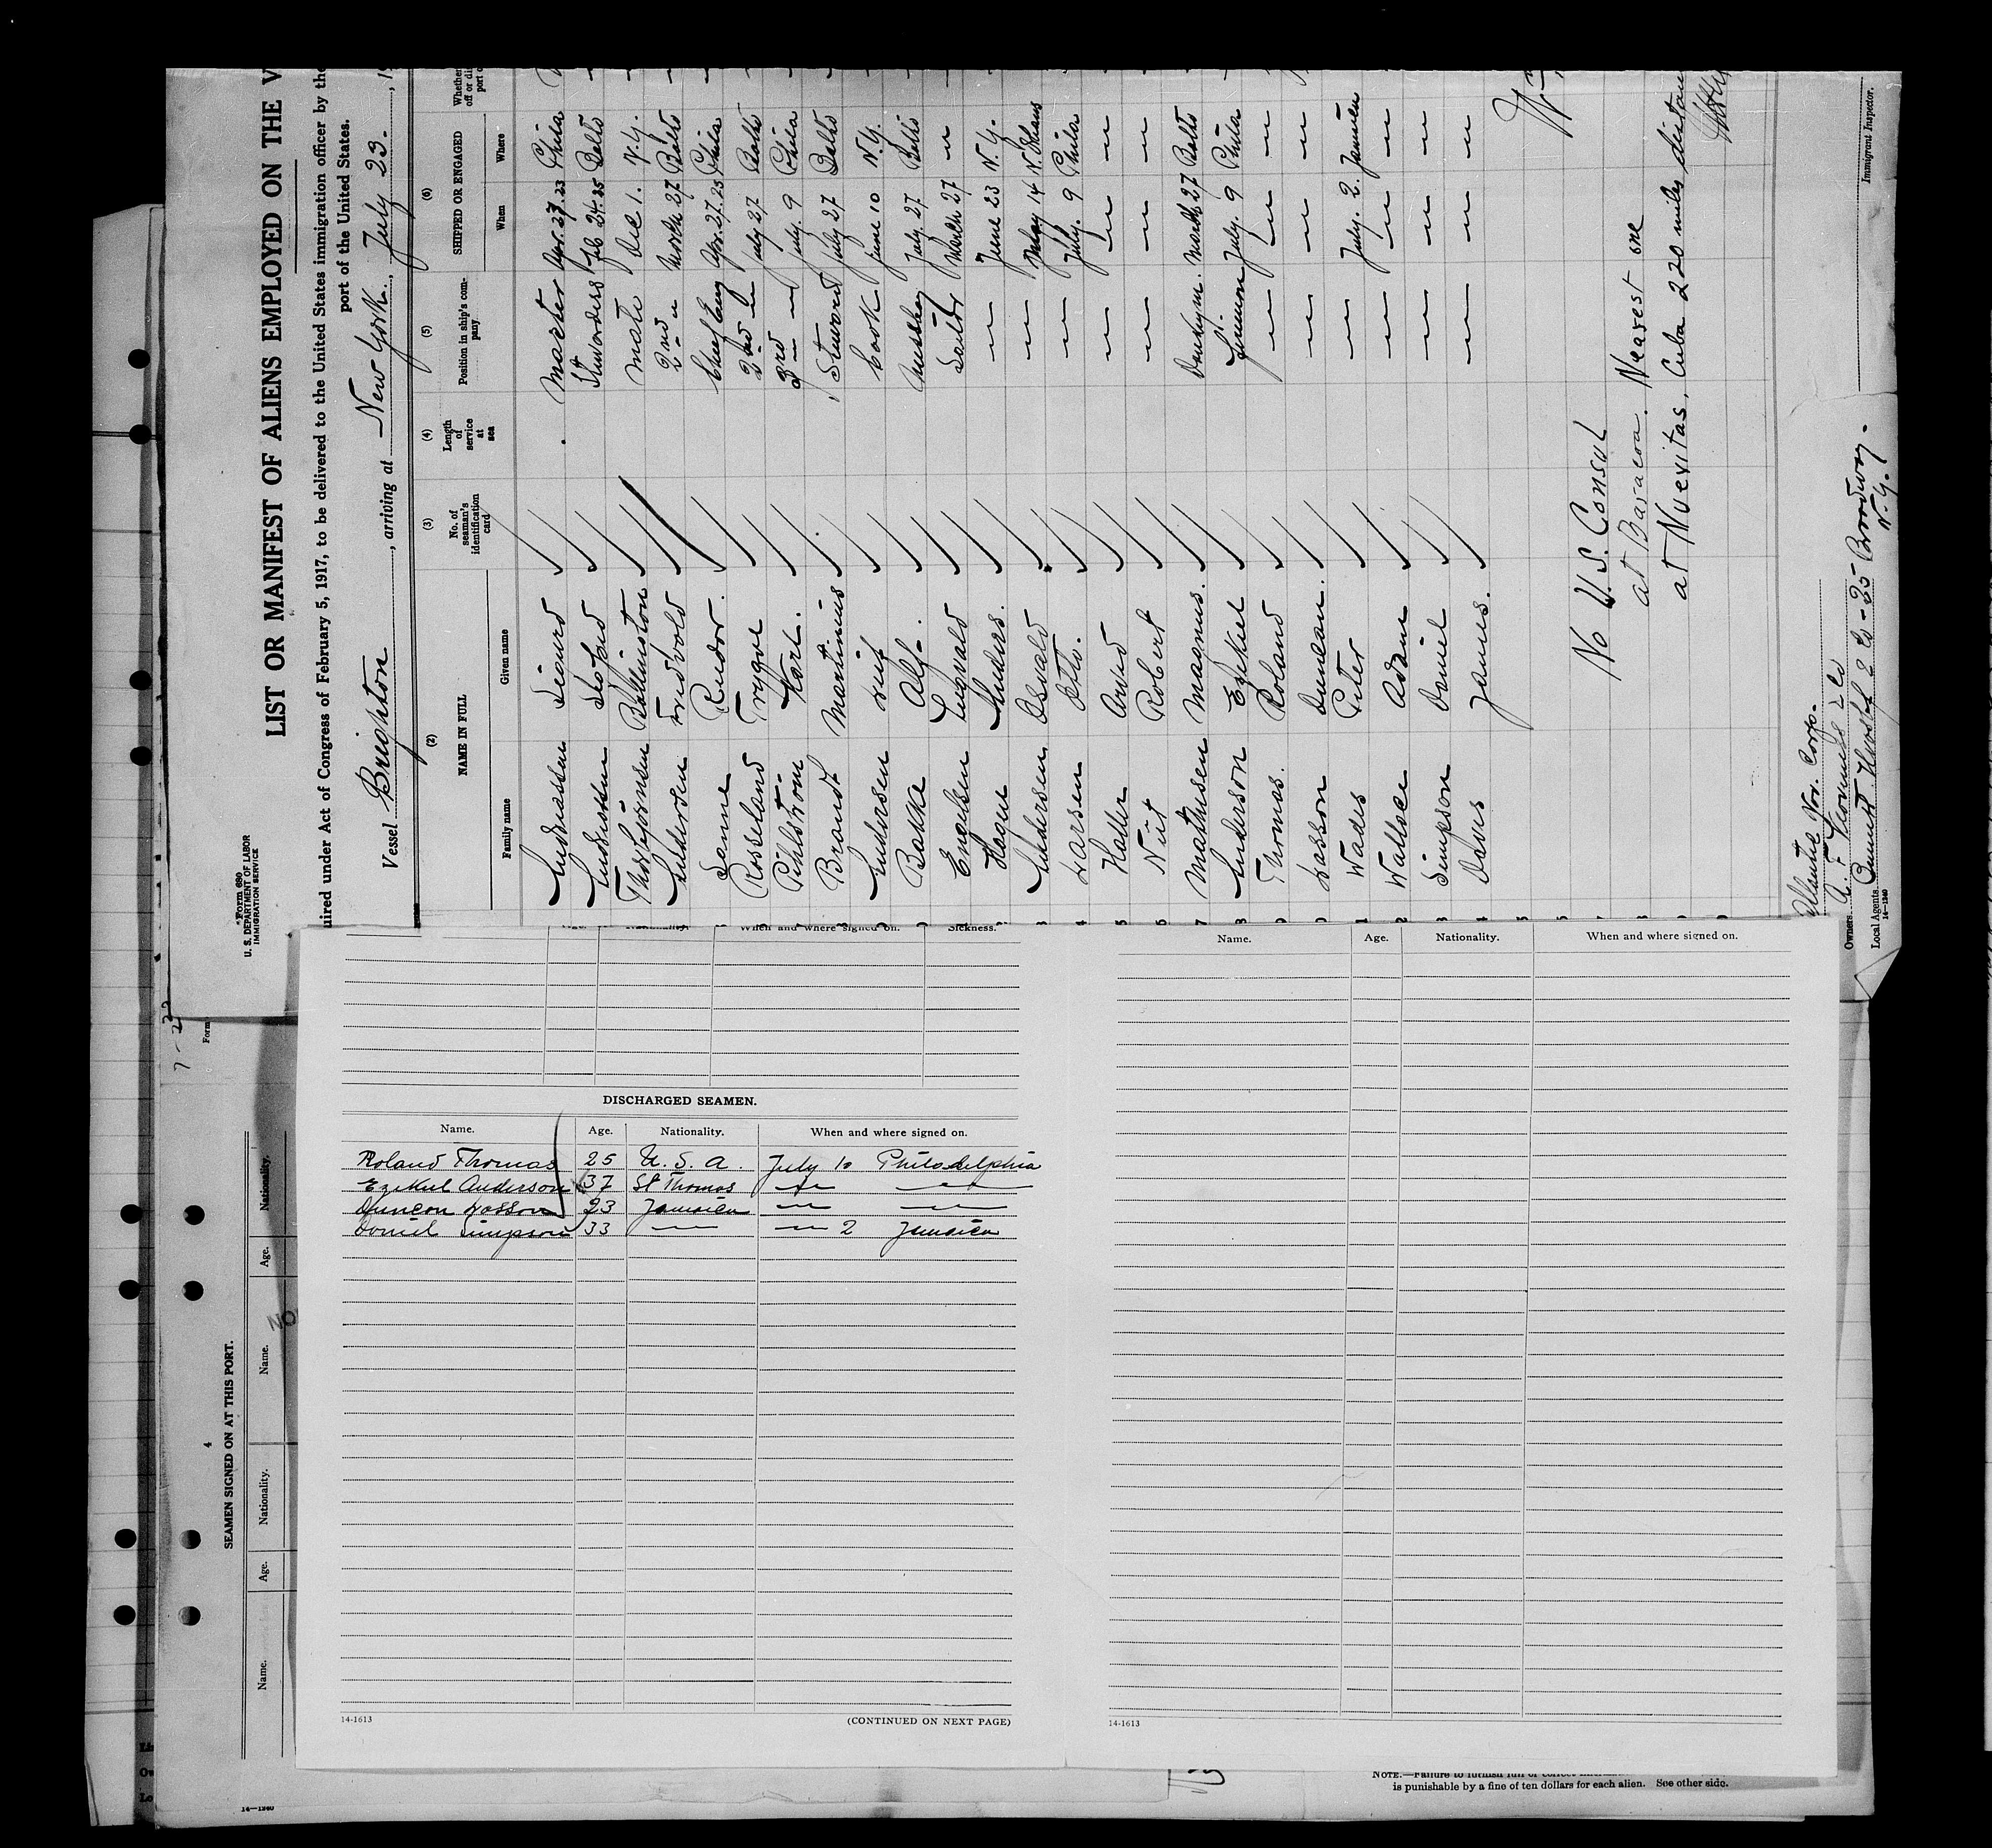 Form 680
U. S. DEPARTMENT OF LABOR
IMMIGRATION SERVICE
LIST OR MANIFEST OF ALIENS EMPLOYED ON THE V
uired under Act of Congress of February 5, 1917, to be delivered to the United States immigration officer by the
port of the United States.
Vessel Brighton, arriving at New York, July 23, 19
(2) (3) (4) (5) (6)
NAME IN FULL No. of seaman's identification card Length of service at sea Position in ship's company SHIPPED OR ENGAGED
Family name Given name When Where
Sigurd Master Apr. 27. 23 Phila
Stewardess Feb 24. 25 Balto
Mate Dec 1. N.Y.
2nd " March 27 Balto
Sanne Reidar. Chief Eng Apr. 27. 25 Phila
Roseland Trygve 2nd — July 27 Balto
Pihlstrom Karl. 3rd — July. 9 Phila
Brandt Martinius Steward July 27 Balto
Andersen Leif Cook June 10 N.Y.
Bakke Alf. Messboy July. 27 Balto
Engelsen Ludvald Sailor March 27 —
Hagen Anders. — June 23 N.Y.
Andersen Osvald — May 14 N. Orleans
Larsen Otto. — July. 9 Phila
Haller Arvid — — —
Robert — — —
Mathisen Magnus. Donkeym. March 27 Balto
Anderson Ezekiel Fireman July. 9 Phila
Thomas. Roland — — —
Lasson Duncan. — — —
Wades Peter — July. 2. Jamaica
Wallace Adam — — —
Simpson Daniel — — —
Daves James. — — —
No U. S. Consul
at Baracoa. Nearest one
at Nuevitas, Cuba 220 miles distan
Immigrant Inspector.
Atlantic Nav. Corp.
Owners
Local Agents Bennett Hvoslef & Co - 25 Broadway - N.Y.
14—1240
Age. When and where signed on. Sickness.
DISCHARGED SEAMEN.
Name. Age. Nationality. When and where signed on.
Roland Thomas 25 U. S. A. July 10 Philadelphia
Ezekiel Anderson 37 St Thomas — —
Duncan Lasson 23 Jamaica — —
Daniel Simpson 33 — — 2 Jamaica
14-1613
(CONTINUED ON NEXT PAGE)
Name. Age. Nationality. When and where signed on.
14-1613
Form
4
SEAMEN SIGNED ON AT THIS PORT.
Name. Age. Nationality. Name. Age. Nationality.
14—1240
is punishable by a fine of ten dollars for each alien. See other side.